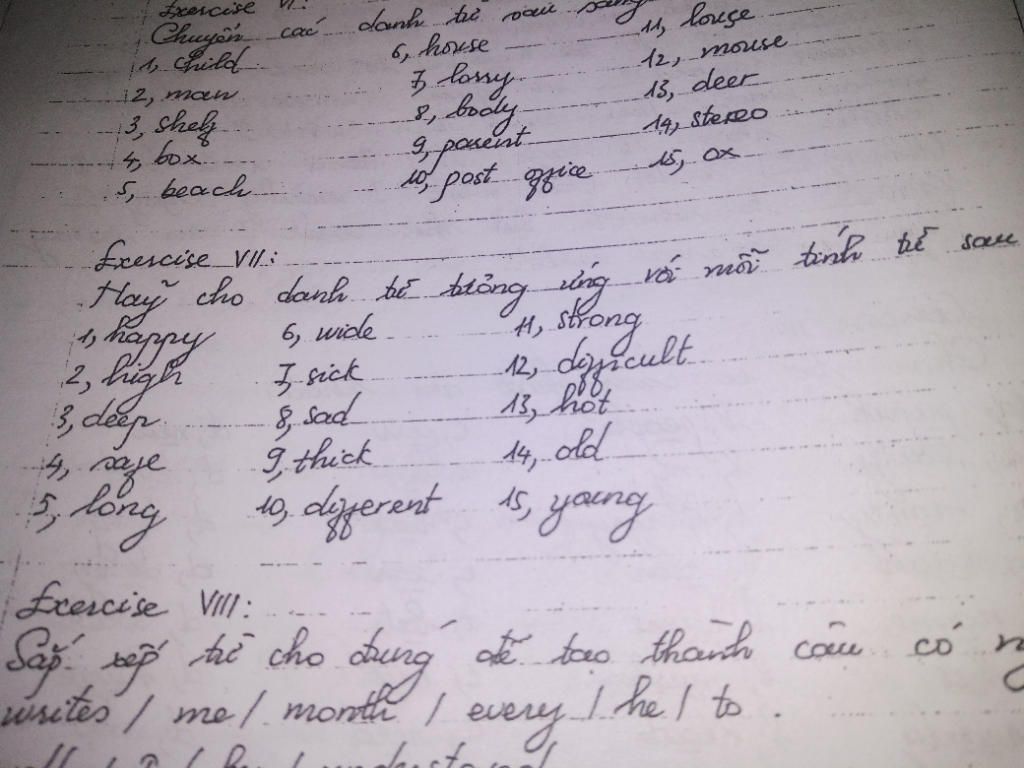 Exercise VI:
Chuyển các danh từ sau sang
1, child 6, house 11, louse
2, man 7, lorry 12, mouse
3, shelf 8, body 13, deer
4, box 9, parent 14, stereo
5, beach 10, post office 15, ox
Exercise VII:
Hãy cho danh từ tương ứng với mỗi tính từ sau
1, happy 6, wide 11, strong
2, high 7, sick 12, difficult
3, deep 8, sad 13, hot
4, safe 9, thick 14, old
5, long 10, different 15, young
Exercise VIII:
Sắp xếp từ cho đúng để tạo thành câu có
writes / me / month / every / he / to .
understand